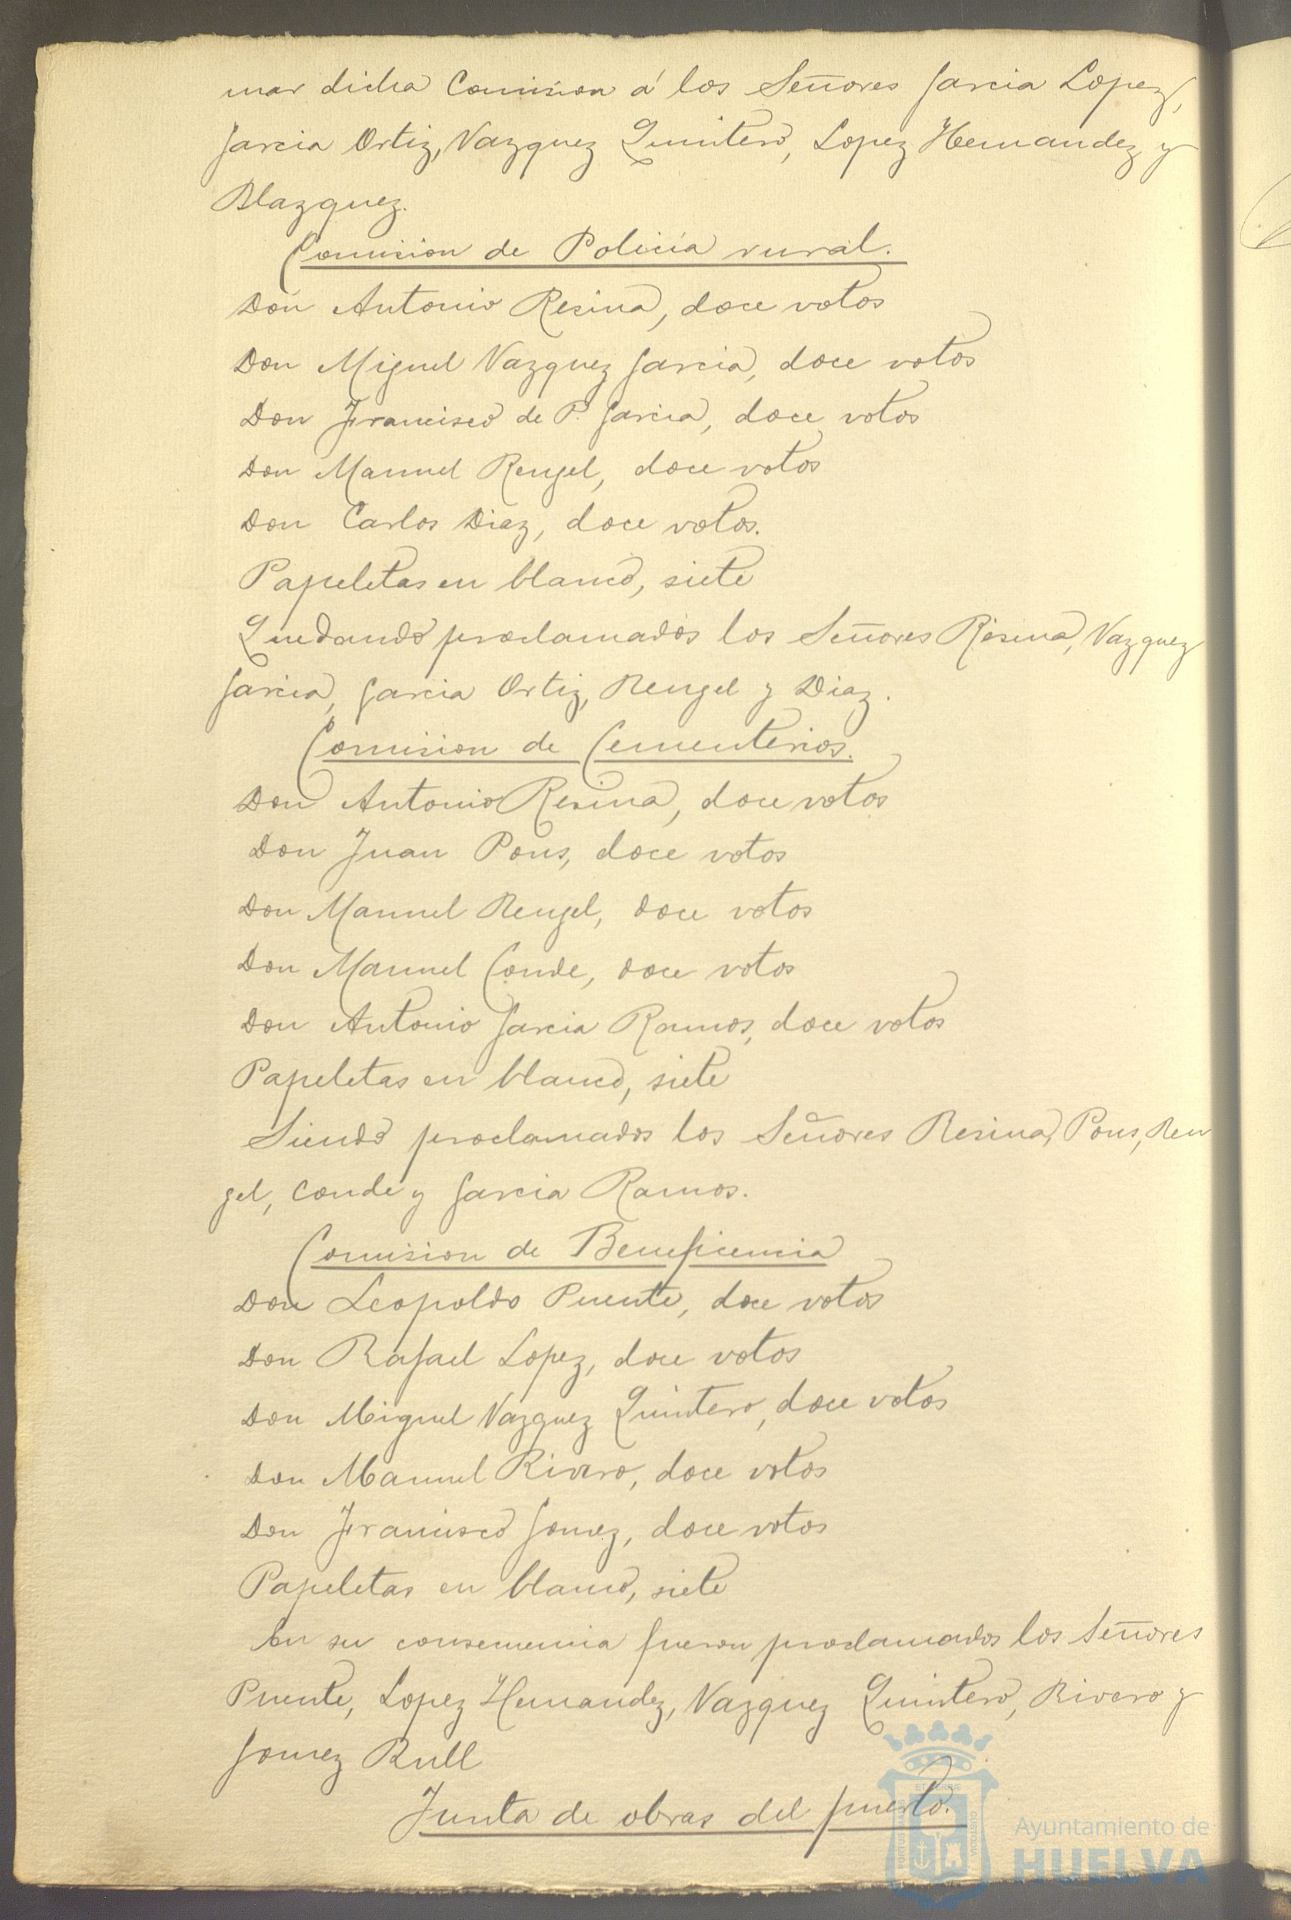 mar dicha Comision á los Señores Garcia Lopez,
Garcia Ortiz, Vazquez Quintero, Lopez Hernandez y
Blazquez.
Comision de Policia rural.
Don Antonio Resina, doce votos
Don Miguel Vazquez Garcia, doce votos
Don Francisco de P. Garcia, doce votos
Don Manuel Rengel, doce votos
Don Carlos Diaz, doce votos.
Papeletas en blanco, siete
Quedando proclamados los Señores Resina, Vazquez
Garcia, Garcia Ortiz, Rengel y Diaz.
Comision de Cementerios.
Don Antonio Resina, doce votos
Don Juan Pons, doce votos
Don Manuel Rengel, doce votos
Don Manuel Conde, doce votos
Don Antonio Garcia Ramos, doce votos
Papeletas en blanco, siete
Siendo proclamados los Señores Resina, Pons, Ren
gel, Conde y Garcia Ramos.
Comision de Beneficencia
Don Leopoldo Puente, doce votos
Don Rafael Lopez, doce votos
Don Miguel Vazquez Quintero, doce votos
Don Manuel Rivero, doce votos
Don Francisco Gomez, doce votos
Papeletas en blanco, siete
En su consecuencia fueron proclamados los Señores
Puente, Lopez Hernandez, Vazquez Quintero, Rivero y
Gomez Rull
Junta de obras del puerto.
Ayuntamiento de
HUELVA